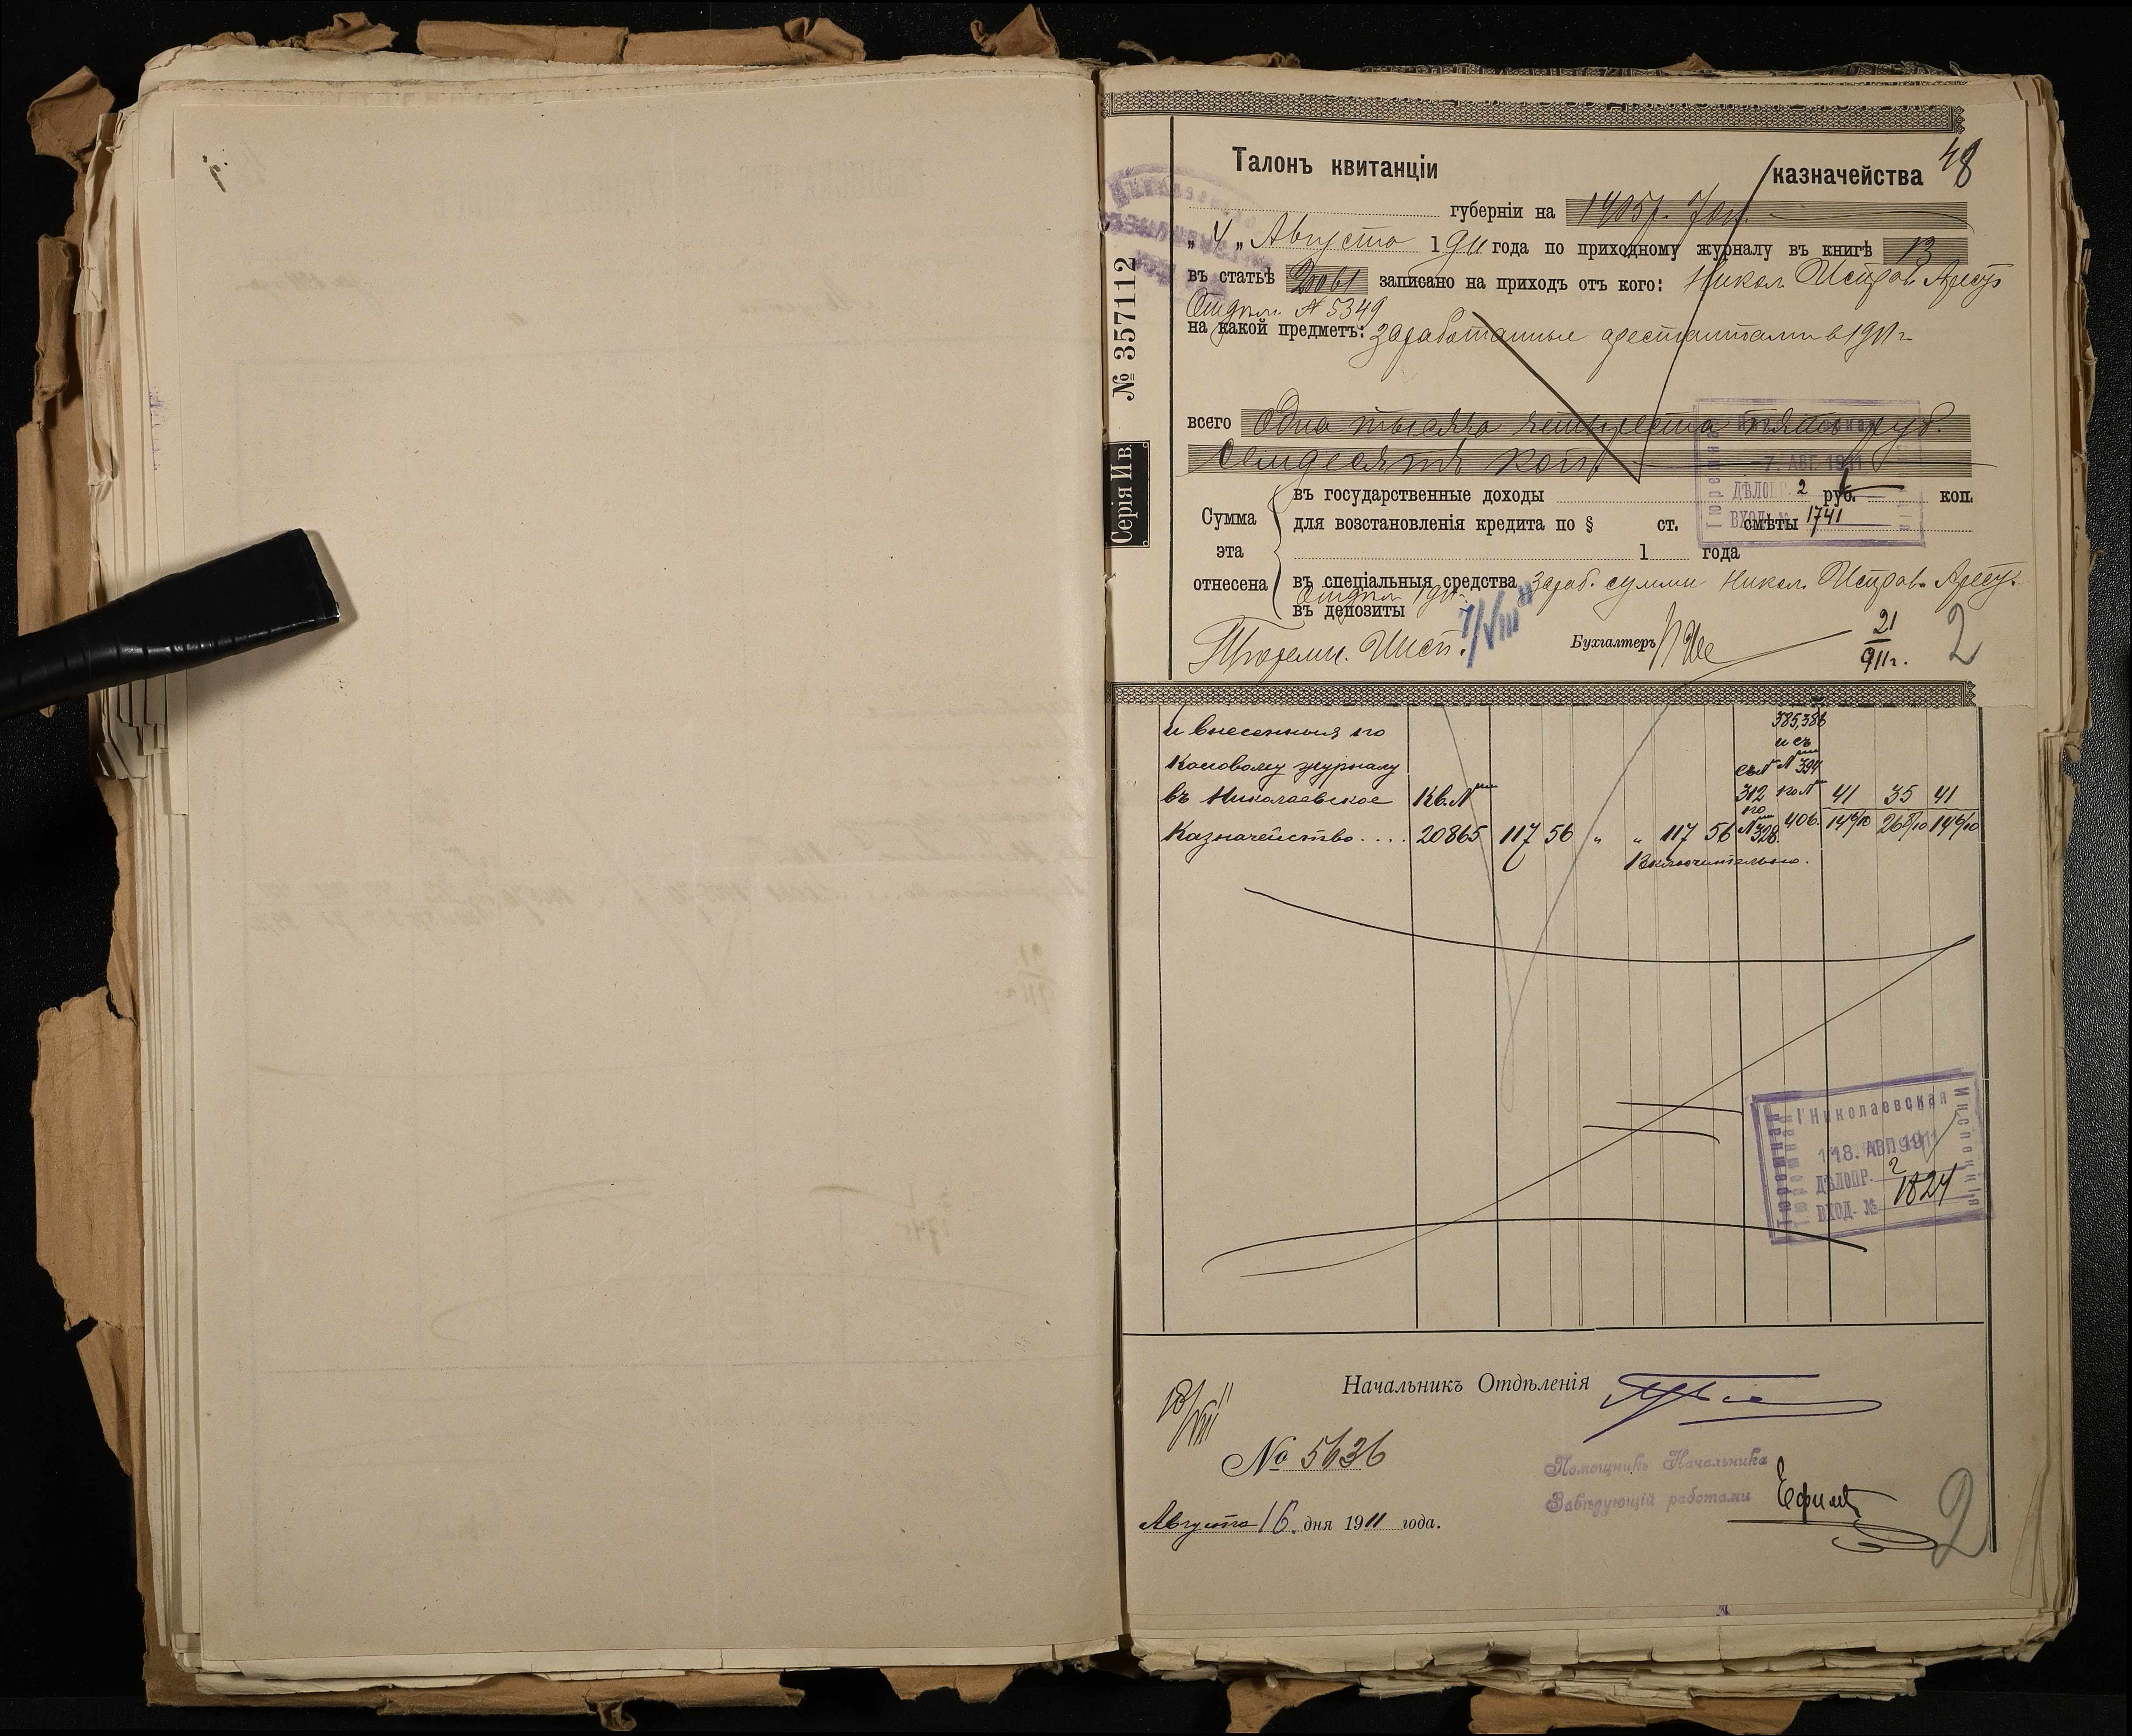 48
Талонъ квитанціи казначейства
губерніи на 1405 р. 70 к.
„4„ Августа 1911 года по приходному журналу въ книгѣ 13
въ статьѣ 20061 записано на приходъ отъ кого: Никол. Исправ. Арест.
Отдѣл. № 5349
на какой предметъ: заработанные арестантами в 1911 г
№ 357112
Серія И в.
всего Одна тысяча четыреста пять руб.
семдесятъ коп.
7. АВГ. 1911
въ государственные доходы руб. коп.
ДѢЛОПР. 2
Сумма эта отнесена
для возстановленія кредита по § ст. смѣты
ВХОД. № 1741
1 года
въ спеціальныя средства зараб. суммы Никол. Исправ. Арест.
Отдѣл. 1911 г.
въ депозиты
7/VIII 11
Тюремн. Инсп. Бухгалтеръ
21
911 г.
2
и внесенныя по
кассовому журналу
въ Николаевское Кв. №
Казначейство.... 20865 117 56 „ „ 117 56
385,386
и съ
съ № № 394
312 по № 406.
по № 328.
41 35 41
14 6/10 26 8/10 14 6/10
Включительно.
Николаевская
Тюремная
Инспекція
18. АВГ. 1911
ДѢЛОПР. 2
ВХОД. № 1824
Начальникъ Отдѣленія
18/VIII 11
№ 5636
Помощникъ Начальника
Завѣдующій работами
Августа 16. дня 1911 года.
2